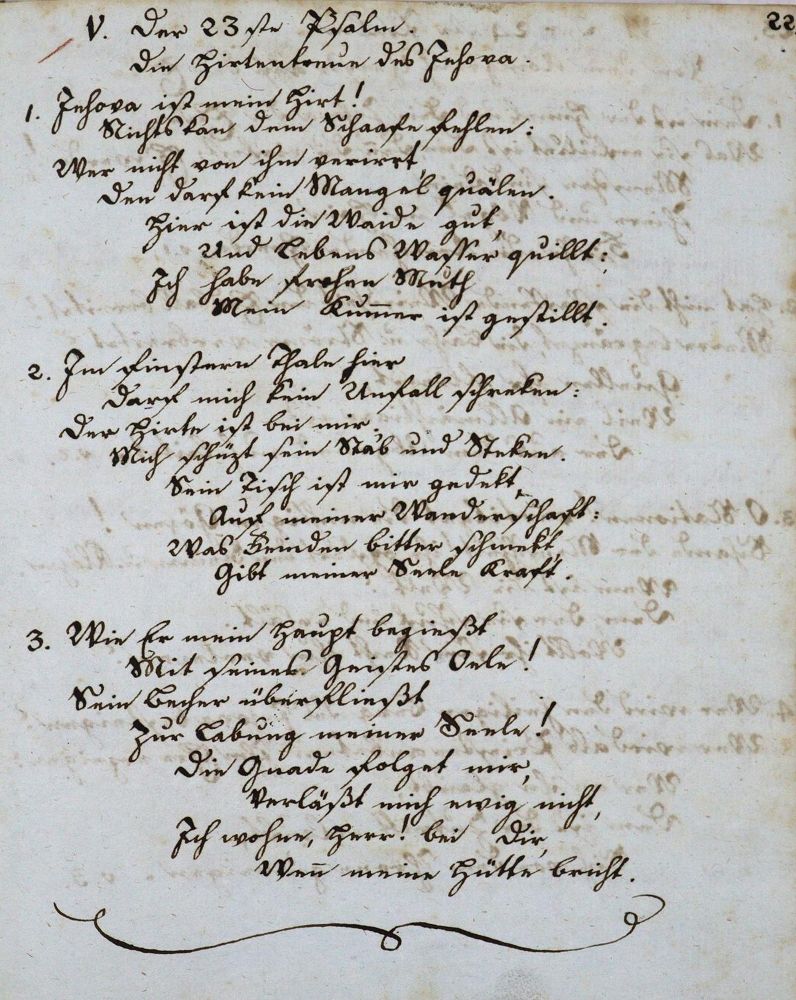 22
V. Der 23ste Psalm.
Die Hirtentreue des Jehova.
1. Jehova ist mein Hirt!
Nichts kan dem Schaafe fehlen:
Wer nicht von ihm verirrt,
Den darf kein Mangel quälen.
Hier ist die Waide gut,
Und Lebens Wasser quillt:
Ich habe frohen Muth
Mein Kum̅er ist gestillt.
2. Im finstern Thale hier
Darf mich kein Unfall schreken:
Der Hirte ist bei mir,
Mich schüzt sein Stab und Steken.
Sein Tisch ist mir gedekt,
Auf meiner Wanderschaft:
Was Feinden bitter schmekt,
Gibt meiner Seele Kraft.
3. Wie Er mein Haupt begießt
Mit seines Geistes Oele!
Sein Becher überfließt
Zur Labung meiner Seele!
Die Gnade folget mir,
Verläßt mich ewig nicht,
Ich wohne, Herr! bei Dir,
Wen̅ meine Hütte bricht.